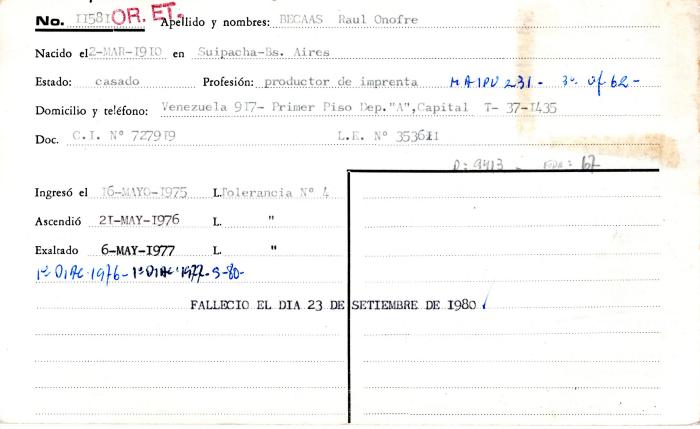 No. 11581 OR. ET. Apellido y nombres: BECAAS Raul Onofre
Nacido el 2-MAR-1910 en Suipacha-Bs. Aires
Estado: casado Profesión: productor de imprenta MAIPU 231- 3º Of 62-
Domicilio y teléfono: Venezuela 917- Primer Piso Dep."A",Capital T- 37-1435
Doc. C.I. Nº 727919 L.E. Nº 353611
D: 9413 - : 67
Ingresó el 16-MAYO-1975 L. Tolerancia Nº 4
Ascendió 21-MAY-1976 L. "
Exaltado 6-MAY-1977 L. "
1º DIAC. 1976- 1º DIAC. 1977- S-80-
FALLECIO EL DIA 23 DE SETIEMBRE DE 1980